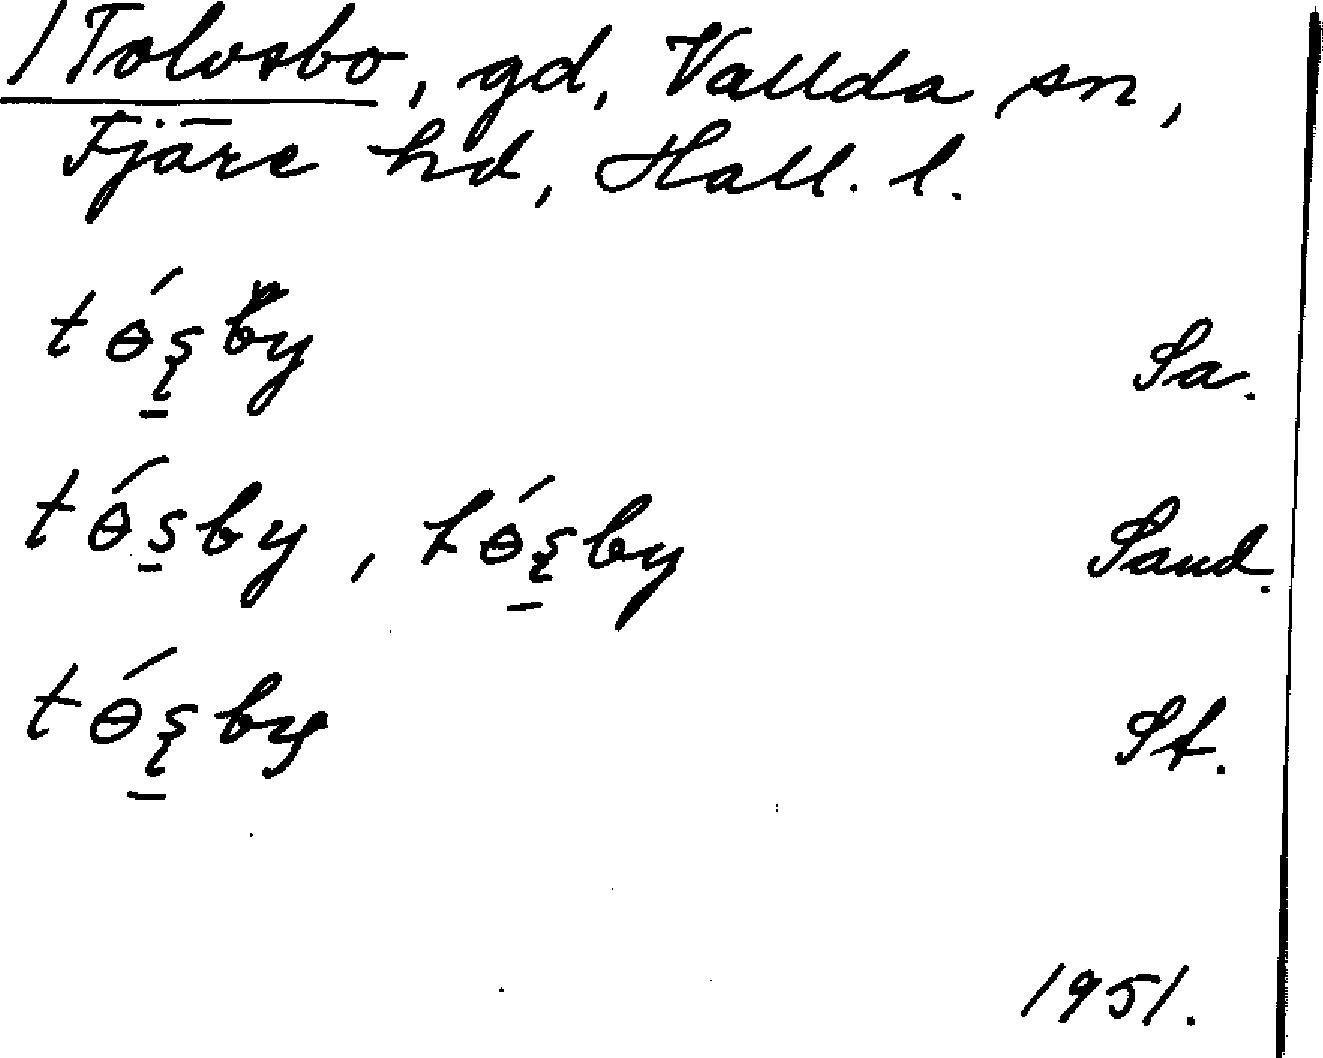 /Tolvsbo, gd, Vallda sn,
Fjäre hd, Hall. l.
tɵ́s̨by Sa.
tɵ́s̠by, tɵ́s̨by Sand.
tɵ́s̨by St.
1951.